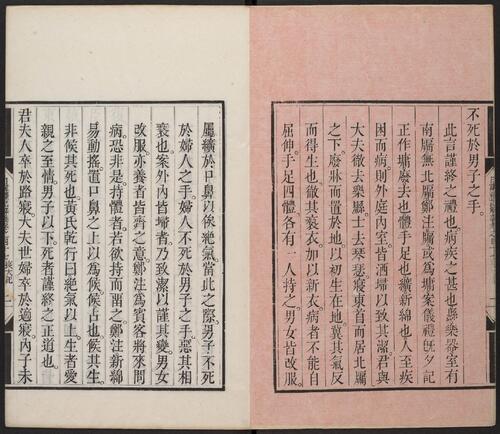 不死於男子之手。
此言謹終之禮也。病疾之甚也。縣樂器。室有
南牖無北牖。鄭注牖或為墉。案儀禮旣夕記
正作墉。廢去也。體手足也。纊新綿也。人至疾
困而病。則外庭內室皆洒埽以致其潔。君與
大夫徹去樂縣。士去琴瑟。寢東首而居北牖
之下。廢牀而置於地。以初生在地。冀其氣反
而得生也。徹其褻衣。加以新衣。病者不能自
屈伸。手足四體。各有一人持之。男女皆改服。
屬纊於口鼻以俟絶氣。當此之際。男子不死
於婦人之手。婦人不死於男子之手。惡其相
褻也。案外內皆埽者。乃致潔以謹其變。男女
改服。亦養者皆齊之意。鄭注為賓客將來問
病。恐非是。持體者。若欲持而留之。鄭注新綿
易動搖。置口鼻之上以為候。候占也。候其生。
非候其死也。黃氏乾行曰。絶氣以上。生者愛
親之至情。男子以下。死者謹終之正道也。
君夫人卒於路寢。大夫世婦卒於適寢。內子未